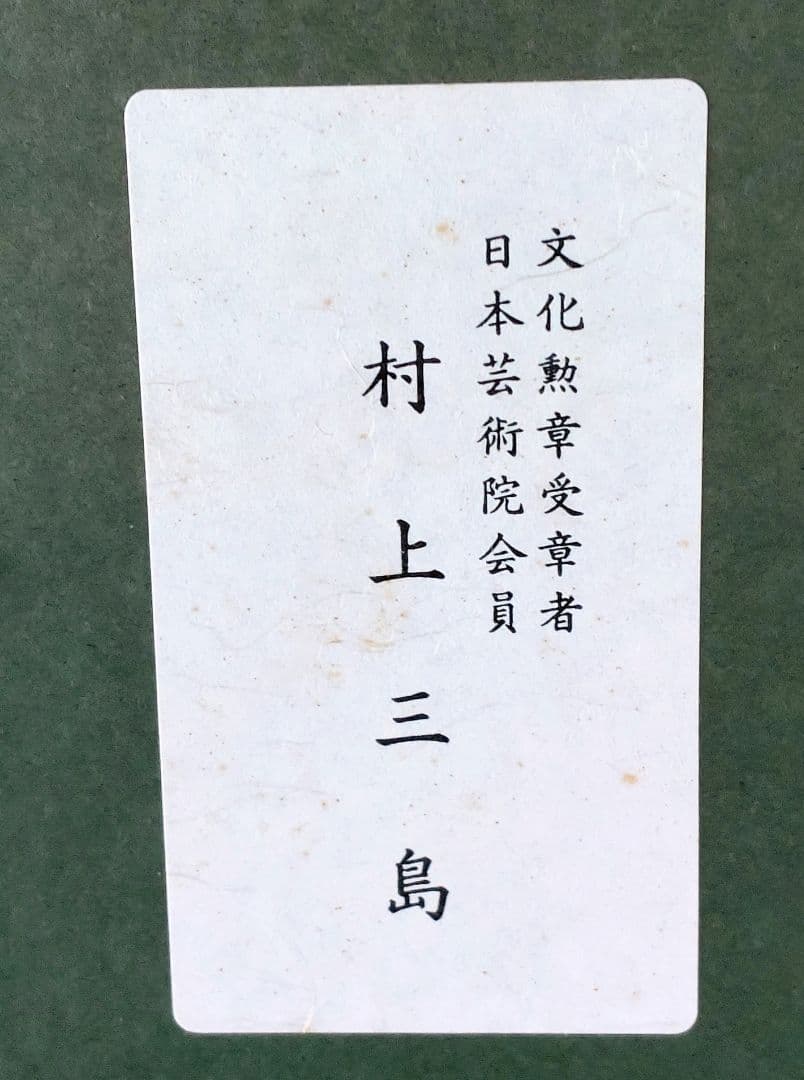 文化勲章受章者
日本芸術院会員
村上三島